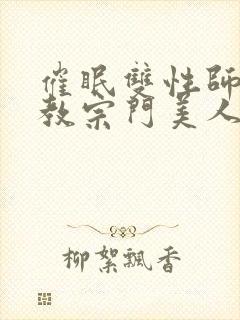 催眠雙性師
教宗門美人
柳絮飄香